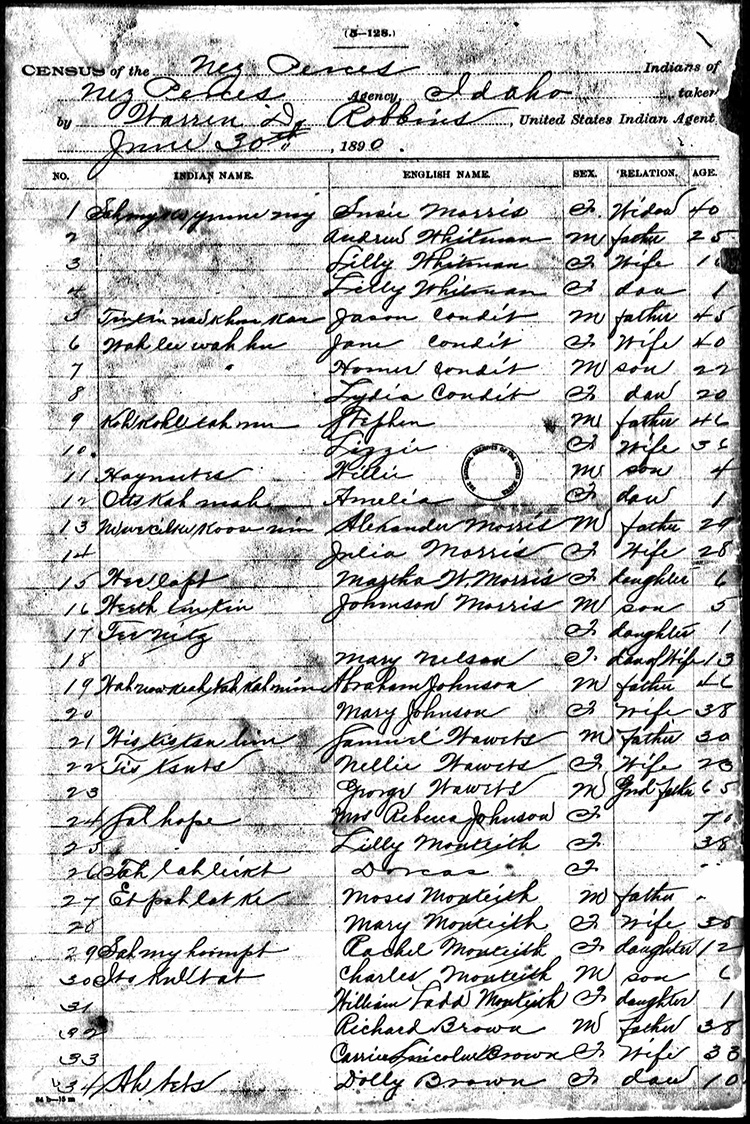 (5—128.)
CENSUS of the Nez Perces Indians of
Nez Perces Agency, Idaho taken
by Warren D. Robbins, United States Indian Agent
June 30th, 1890.
NO. INDIAN NAME. ENGLISH NAME. SEX. RELATION. AGE.
1 Susie Morris F. Widow 40
2 Andrew Whitman M father 25
3 Lilly Whitman F Wife
4 Lilly Whitman F dau 1
5 Jason Condit M father 45
6 Wah lee wah hu Jane Condit F Wife 40
7 Homer Condit M son 22
8 Lydia Condit F dau 20
9 Stephen M father 46
10. Lizzie F Wife 36
11 Willie M son 4
12 Otts kah mah Amelia F dau 1
13 Alexander Morris M father 29
14 Julia Morris F Wife 28
15 Martha W. Morris F daughter 6
16 Johnson Morris M son 5
17 F daughter 1
18 Mary Nelson F. dau of Wife 13
19 Abraham Johnson M father 46
20 Mary Johnson F Wife 38
21 Samuel Wawets M father 30
22 Nellie Wawets F Wife 23
23 George Wawets M Gnd father 65
24 Jal hope Mrs Rebecca Johnson F 70
25 Lilly Monteith F 38
26 Tah lah lickt Dorcas F
27 Et pah lat ke Moses Monteith M father
28 Mary Monteith F Wife
29 Rachel Monteith F daughter 12
30 Charles Monteith M son 6
31 William Ladd Monteith F daughter 1
32 Richard Brown M Father 38
33 Carrie Lincoln Brown F Wife 33
34 Ah tets Dolly Brown F dau 10